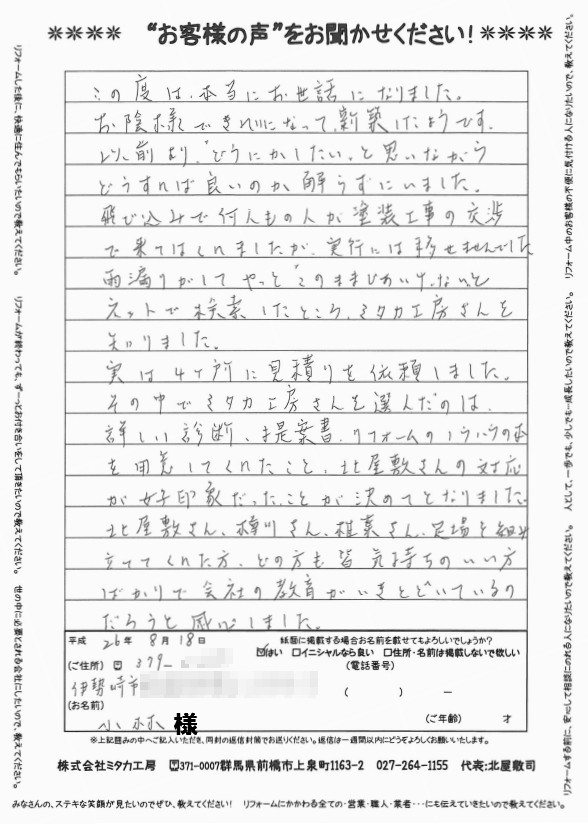 ＊＊＊＊ “お客様の声”をお聞かせください！ ＊＊＊＊
この度は、本当にお世話になりました。
お陰様できれいになって、新築したようです。
以前より、“どうにかしたい”と思いながら
どうすれば良いのか解らずにいました。
飛び込みで何人もの人が塗装工事の交渉
で来てはくれましたが、実行には移せませんでした
雨漏りがしてやっと“このままじゃいけない”と
ネットで検索したところ、ミタカ工房さんを
知りました。
実は4ヶ所に見積りを依頼しました。
その中でミタカ工房さんを選んだのは、
詳しい診断、提案書、リフォームのノウハウの本
を用意してくれたこと、北屋敷さんの対応
が好印象だったことが決めてとなりました。
北屋敷さん、樺川さん、椎葉さん、足場を組み
立ててくれた方、どの方も皆気持ちのいい方
ばかりで会社の教育がいきとどいているの
だろうと感心しました。
平成 26年 8月 18日
紙面に掲載する場合お名前を載せてもよろしいでしょうか？
☑はい □イニシャルなら良い □住所・名前は掲載しないで欲しい
(ご住所) 〒 379-
(電話番号)
伊勢崎市
( ) －
(お名前)
小林 様
(ご年齢) 才
※上記囲みの中へご記入いただき、同封の返信封筒でお送りください。返信は一週間以内にどうぞよろしくお願いいたします。
株式会社ミタカ工房 〒371-0007群馬県前橋市上泉町1163-2 027-264-1155 代表:北屋敷司
みなさんの、ステキな笑顔が見たいのでぜひ、教えてください！ リフォームにかかわる全ての・営業・職人・業者・・・にも伝えていきたいので教えてください。
リフォームした後に、快適に住んでもらいたいので教えてください。
リフォームが終わっても、ずーっとお付き合いをして頂きたいので教えてください。
世の中に必要とされる会社にしたいので、教えてください。
リフォーム中のお客様の不便に気付ける人になりたいので、教えてください。
人として、一歩でも、少しでも成長したいので教えてください。
リフォームする前に、安心して相談にのれる人になりたいので教えてください。